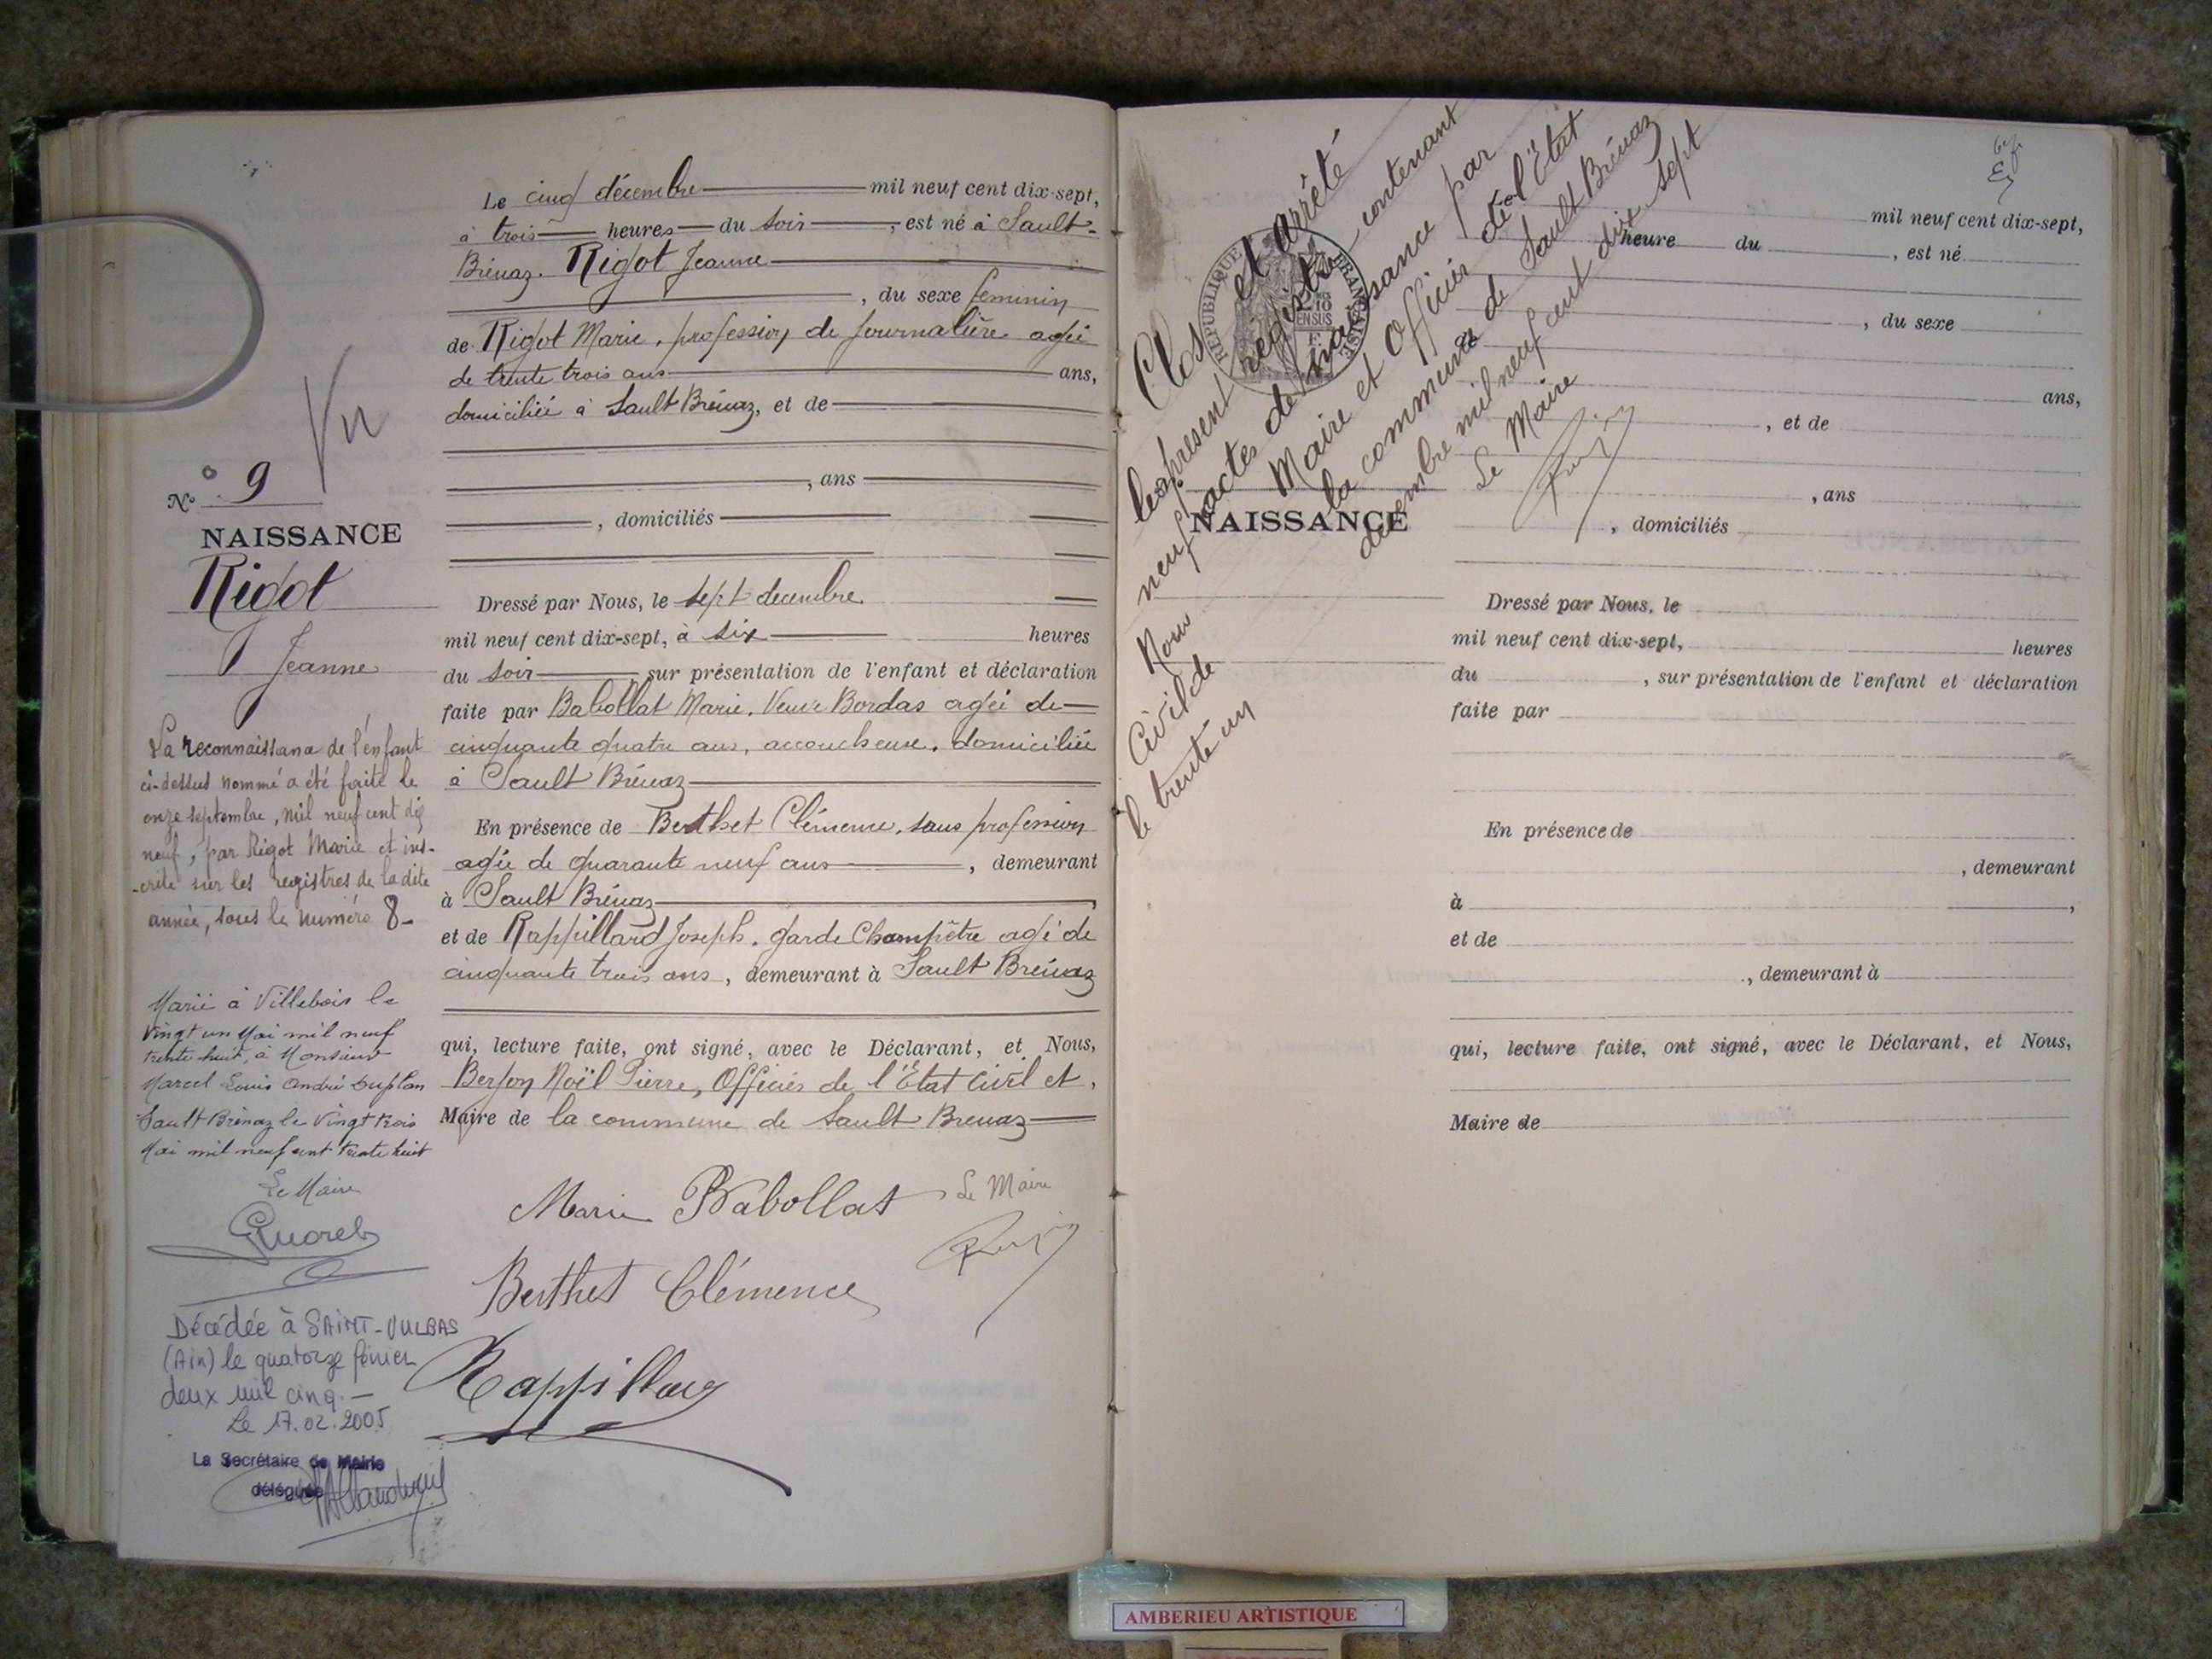 Le cinq décembre mil neuf cent dix-sept,
à trois heures du soir, est né à Sault-
Brénaz. Rigot Jeanne
, du sexe feminin
de Rigot Marie, profession de journalière agée
de trente trois ans ans,
domiciliée à Sault Brénaz, et de
, ans
, domiciliés
Vu
N° 9
NAISSANCE
Rigot
Jeanne
Dressé par Nous, le sept decembre
mil neuf cent dix-sept, à six heures
du soir, sur présentation de l'enfant et déclaration
faite par Babollat Marie, Veuve Bordas agée de
cinquante quatre ans, accoucheuse, domiciliée
à Sault Brénaz
En présence de Berthet Clémence, sans profession
agée de quarante neuf ans, demeurant
à Sault Brénaz,
et de Rappillard Joseph, garde Champêtre agé de
cinquante trois ans, demeurant à Sault Brénaz
qui, lecture faite, ont signé, avec le Déclarant, et Nous,
Noël Pierre, Officier de l'Etat Civil et,
Maire de la commune de Sault Brenaz
Marie Babollat
Le Maire
Berthet Clémence
Rappillard
La reconnaissance de l'enfant
ci-dessus nommé a été faite le
onze septembre, mil neuf cent dix
neuf, par Rigot Marie et ins-
-crite sur les registres de la dite
année, sous le numéro 8-
Marié à Villebois le
vingt un Mai mil neuf
trente-huit, à Monsieur
Marcel Louis André Duplan
Sault Brénaz le Vingt trois
Mai mil neuf cent trente huit
Le Maire
Décédée à SAINT-VULBAS
(Ain) le quatorze février
deux mil cinq.-
Le 17.02.2005
La Secrétaire de Mairie
déléguée
Clos et arrêté
le présent registre contenant
neuf actes de naissance par
Nous Maire et Officier de l'Etat
Civil de la commune de Sault Brénaz
le trente un decembre mil neuf cent dix sept
Le Maire
REPUBLIQUE FRANCAISE
mil neuf cent dix-sept,
heure du, est né
, du sexe
ans,
, et de
, ans
, domiciliés
NAISSANCE
Dressé par Nous, le
mil neuf cent dix-sept, heures
du, sur présentation de l'enfant et déclaration
faite par
En présence de
, demeurant
à,
et de
, demeurant à
qui, lecture faite, ont signé, avec le Déclarant, et Nous,
Maire de
AMBERIEU ARTISTIQUE